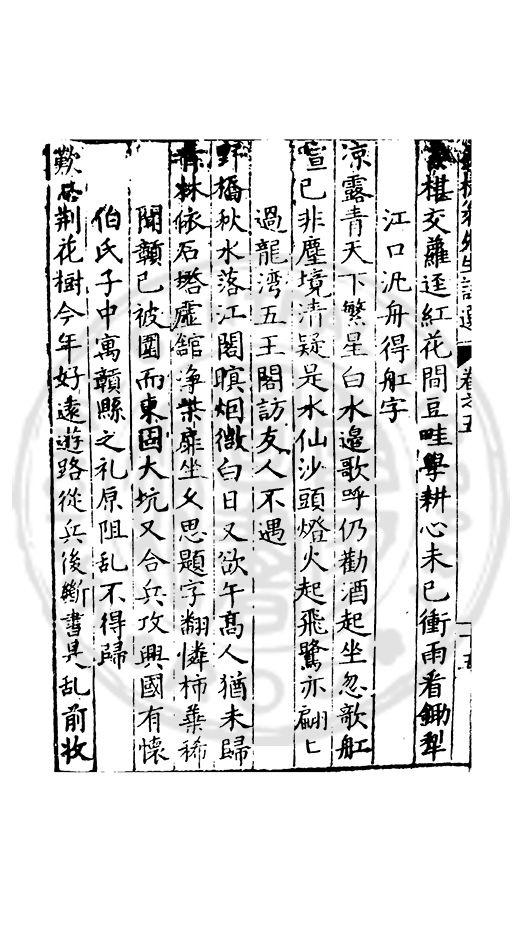 椹交蘿逕紅花間豆畦學耕心未已衝雨看鋤犁
江口汎舟得舡字
凉露青天下繁星白水邉歌呼仍勸酒起坐忽歌舡
喧已非塵境清疑是水仙沙頭燈火起飛鷺亦翩匕
過龍湾五王閣訪友人不遇
野橋秋水落江閣暝烟微白日又欲午髙人猶未歸
青林依石墖虛舘净柴扉坐久思題字翻憐柿葉稀
聞贛已被圍而東固大坑又合兵攻興國有懐
伯氏子中寓贛縣之礼原阻乱不得歸
歎 荆花樹今年好遠遊路從兵後斷書是乱前收
先生詩選 卷之五 十五